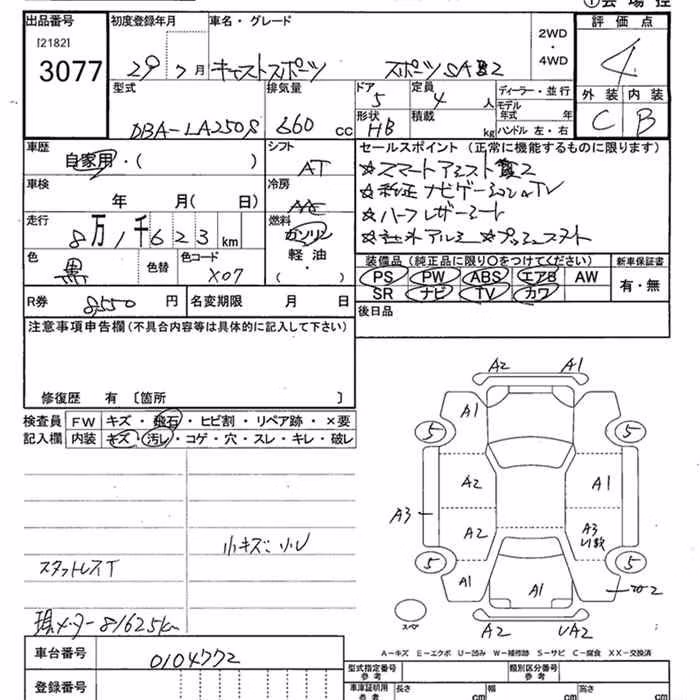 ①会場控
出品番号 初度登録年月 車名・グレード 2WD・4WD 評価点
[2182]
3077 29 7月 キャストスポーツ スポーツSAⅢ2 4
型式 排気量 ドア 5 定員 4 人 ディーラー・並行 外装 内装
モデル年式 年
DBA-LA250S 660 cc 形状 HB 積載 kg ハンドル 左・右 C B
車歴 自家用・( ) シフト AT
セールスポイント (正常に機能するものに限ります)
☆スマートアシスト 2
車検 年 月( 日) 冷房 AAC
☆純正ナビゲーション&TV
☆ハーフレザーシート
走行 8万1千623km 燃料 ガソリン 軽油 ( )
☆社外アルミ ☆プッシュスタート
色 黒 色替 色コード X07
装備品 (純正品に限り○をつけてください) 新車保証書
PS PW ABS エアB AW 有・無
SR ナビ TV カワ
R券 8,550 円 名変期限 月 日 後日品
注意事項申告欄 (不具合内容等は具体的に記入して下さい)
修復歴 有 〔箇所 〕
検査員記入欄 FW キズ・飛石・ヒビ割・リペア跡・×要
内装 キズ・汚レ・コゲ・穴・スレ・キレ・破レ
小キズ 小ヨゴレ
スタットレスT
現メーター81625km
A2 A1
A1
5 5
A2 A1
A3
A2 A3
5 5
A1 A1
A2 UA2
スペア
A-キズ E-エクボ U-凹み W-補修跡 S-サビ C-腐食 XX-交換済
車台番号 0104772
登録番号
型式指定番号 参考 類別区分番号 参考
車庫証明用 参考 長さ cm 幅 cm 高さ cm